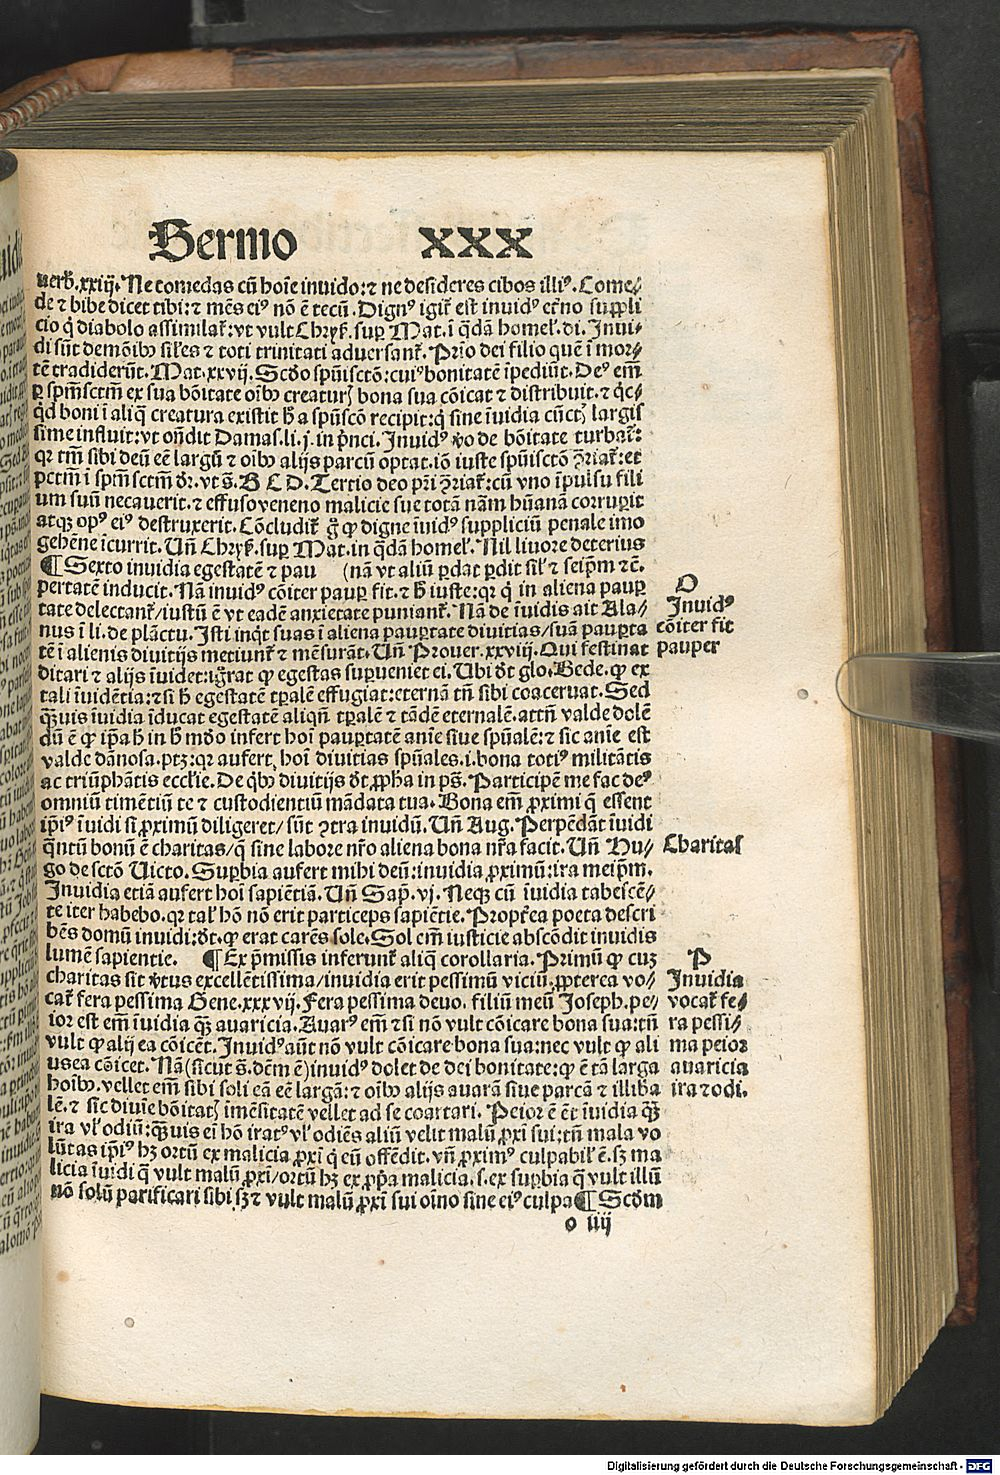 Sermo XXX
uerb̄.xxiij. Ne comedas cū hoīe inuido: ⁊ ne desideres cibos illiꝰ. Come⸗
de ⁊ bibe dicet tibi: ⁊ mēs eiꝰ nō ē tecū. Dignꝰ igit̄ est inuidꝰ et̄no suppli
cio q̇ diabolo assimilat̄: vt vult Chrys̄. sup Mat. ī q̄dā homel̄. di. Inui⸗
di sūt demōibꝰ siľes ⁊ toti trinitati aduersant̄. Prīo dei filio quē ī mor⸗
tē tradiderūt. Mat.xxvij. Scd̄o spūisctō: cuiꝰ bonitatē īpediūt. Deꝰ em̄
ꝑ spm̄sctm̄ ex sua bōitate oībꝰ creaturꝭ bona sua cōicat ⁊ distribuit. ⁊ q̇c⸗
q̇d boni ī aliq̄ creatura existit h̄ a spūscō recipit: q̇ sine īuidia cūctꝭ largis
sime influit: vt oñdit Damas. li. j. in p̄nci. Inuidꝰ v̄o de bōitate turbat̄:
qꝛ tm̄ sibi deū eē largū ⁊ oībꝰ alijs parcū optat. iō iuste spūisctō ꝯriat̄: et
pctm̄ ī spm̄ sctm̄ dr̄. vt s̄. B C D. Tertio deo pr̄i ꝯriat̄: cū vno īpulsu fili
um suū necauerit. ⁊ effuso veneno malicie sue totā nām hūanā corrupit
atqꝫ opꝰ eiꝰ destruxerit. Cōcludit̄ g̊ ꝙ digne īuidꝰ suppliciū penale imo
gehēne īcurrit. Uñ Chrys̄. sup Mat. in q̄dā homel̄. Nil liuore deterius
¶ Sexto inuidia egestatē ⁊ pau (nā vt aliū ꝑdat ꝑdit sil̄ ⁊ seip̄m ⁊c̄.
pertatē inducit. Nā inuidꝰ cōiter paup fit. ⁊ h̄ iuste: qꝛ q̇ in aliena paup
tate delectant̄/ iustū ē vt eadē anxietate puniant̄. Nā de īuidis ait Ala⸗
nus ī li. de plāctu. Isti inq̇t suas ī aliena pauptate diuitias/ suā paupta
tē ī alienis diuitijs metiunt̄ ⁊ mēsurāt. Uñ Prouer.xxviij. Qui festinat
ditari ⁊ alijs īuidet: ig̊rat ꝙ egestas supueniet ei. Ubi d̄t glo. Bede. ꝙ ex
tali īuidētia: ⁊si h̄ egestatē tꝑalē effugiat: eternā tñ sibi coaceruat. Sed
q̄ꝫuis īuidia īducat egestatē aliqñ tꝑalē ⁊ tādē eternalē. attñ valde dolē
dū ē ꝙ ip̄a h̄ in h̄ mō infert hoī pauptatē aīe siue spūalē: ⁊ sic aīe est
valde dānosa. ptꝫ: qꝛ aufert hoī diuitias spūales. i. bona totiꝰ militātis
ac triūphātis eccl̄ie. De q̇bꝰ diuitijs d̄t ꝓpha in ps̄. Participē me fac deꝰ
omniū timētiū te ⁊ custodientiū mādata tua. Bona em̄ ꝓximi q̄ essent
ip̄iꝰ īuidi si ꝓximū diligeret/ sūt ꝯtra inuidū. Uñ Aug. Perpēdāt īuidi
q̄ntū bonū ē charitas/ q̄ sine labore nr̄o aliena bona nr̄a facit. Uñ Hu⸗
go de sctō Uicto. Supbia aufert mihi deū: inuidia ꝓximū: ira meip̄m.
Inuidia etiā aufert hoī sapiētiā. Uñ Sap̄. vj. Neqꝫ cū īuidia tabescē⸗
te iter habebo. qꝛ tal̄ hō nō erit particeps sapiētie. Propt̄ea poeta descri
bēs domū inuidi: d̄t. ꝙ erat carēs sole. Sol em̄ iusticie abscōdit inuidis
lumē sapientie. ¶ Ex p̄missis inferunt̄ aliq̄ corollaria. Primū ꝙ cuꝫ
charitas sit v̄tus excellētissima/ inuidia erit pessimū viciū. ꝓpterea vo⸗
cat̄ fera pessima Gene.xxxvij. Fera pessima deuo. filiū meū Joseph. pe⸗
ior est em̄ īuidia q̄ꝫ auaricia. Auarꝰ em̄ ⁊si nō vult cōicare bona sua: tñ
vult ꝙ alij ea cōicēt. Inuidꝰ aūt nō vult cōicare bona sua: nec vult ꝙ ali
us ea cōicet. Nā (sicut s̄. dēm ē) inuidꝰ dolet de dei bonitate: ꝙ ē tā larga
hoībꝰ. vellet em̄ sibi soli eā eē largā: ⁊ oībꝰ alijs auarā siue parcā ⁊ illiba
lē. ⁊ sic diuīe bōitatꝭ imēsitatē vellet ad se coartari. Peior ē ēt īuidia q̄ꝫ
ira vl̄ odiū: q̄ꝫuis ei̅ hō iratꝰ vl̄ odiēs aliū velit malū ꝓxi̅ sui: tñ mala vo
lūtas ip̄iꝰ hꝫ ortū ex malicia ꝓxi̅ q̇ eū offēdit. vñ ꝓximꝰ culpabil̄ ē. sꝫ ma
licia īuidi q̇ vult malū ꝓxi̅/ ortū hꝫ ex ꝓp̄a malicia. s. ex supbia q̄ vult illū
nō solū parificari sibi sꝫ ⁊ vult malū ꝓxi̅ sui oīno sine eiꝰ culpa ¶ Scd̄m
o iiij
O
Inuidꝰ
cōiter fit
pauper
Charitas
P
Inuidia
vocat̄ fe⸗
ra pessi⸗
ma peior
auaricia
ira ⁊ odi.
Digitalisierung gefördert durch die Deutsche Forschungsgemeinschaft - DFG